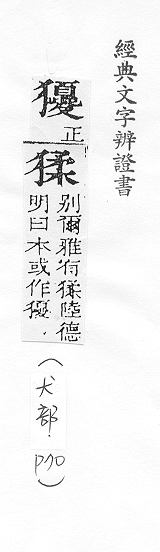 經典文字辨證書
獶正
猱
别爾雅有猱陸德
明曰本或作獶.
(犬部.p70)